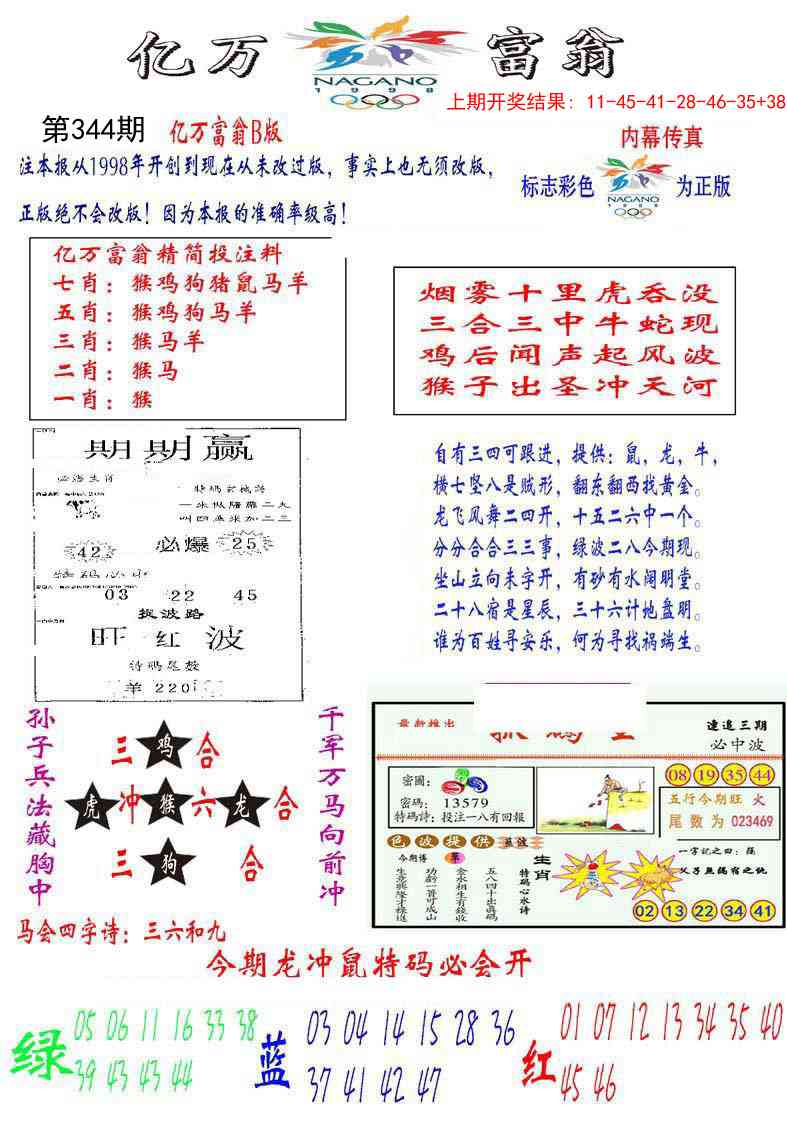 亿万富翁
NAGANO
1998
上期开奖结果：11-45-41-28-46-35+38
第344期
亿万富翁B版
内幕传真
注本报从1998年开创到现在从未改过版，事实上也无须改版，
正版绝不会改版！因为本报的准确率级高！
标志彩色
NAGANO
1998
为正版
亿万富翁精简投注料
七肖：猴鸡狗猪鼠马羊
五肖：猴鸡狗马羊
三肖：猴马羊
二肖：猴马
一肖：猴
烟雾十里虎吞没
三合三中牛蛇现
鸡后闻声起风波
猴子出圣冲天河
期期赢
必爆
42
25
03 22 45
捉波路
旺红波
特码尾数
羊 220
自有三四可跟进，提供：鼠，龙，牛，
横七坚八是贼形，翻东翻西找黄金。
龙飞凤舞二四开，十五二六中一个。
分分合合三三事，绿波二八今期现。
坐山立向未字开，有砂有水阔明堂。
二十八宿是星辰，三十六计地盘明。
谁为百姓寻安乐，何为寻找祸端生。
孙子兵法藏胸中
三 鸡 合
虎 冲 猴 六 龙 合
三 狗 合
千军万马向前冲
最新推出
連追三期
必中波
08 19 35 44
密圖：
密碼：13579
特碼詩：投注一八有回報
五行今期旺 火
尾数为 023469
色波提供
今期博
生意興隆才樣送
功虧一簣可成山
金水相生有錢收
五八四十出真碼
特碼心水诗
生肖
02 13 22 34 41
马会四字诗：三六和九
今期龙冲鼠特码必会开
绿
05 06 11 16 33 38
39 43 43 44
蓝
03 04 14 15 28 36
37 41 42 47
红
01 07 12 13 34 35 40
45 46